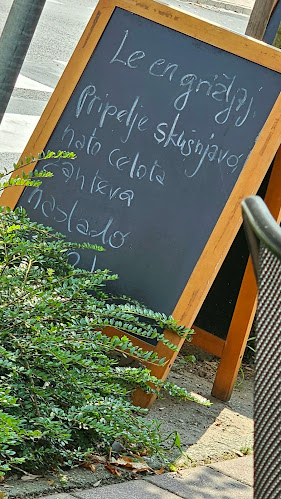 Le en grižljaj
Pripelje skušnjava
nato celota
zahteva
naslado